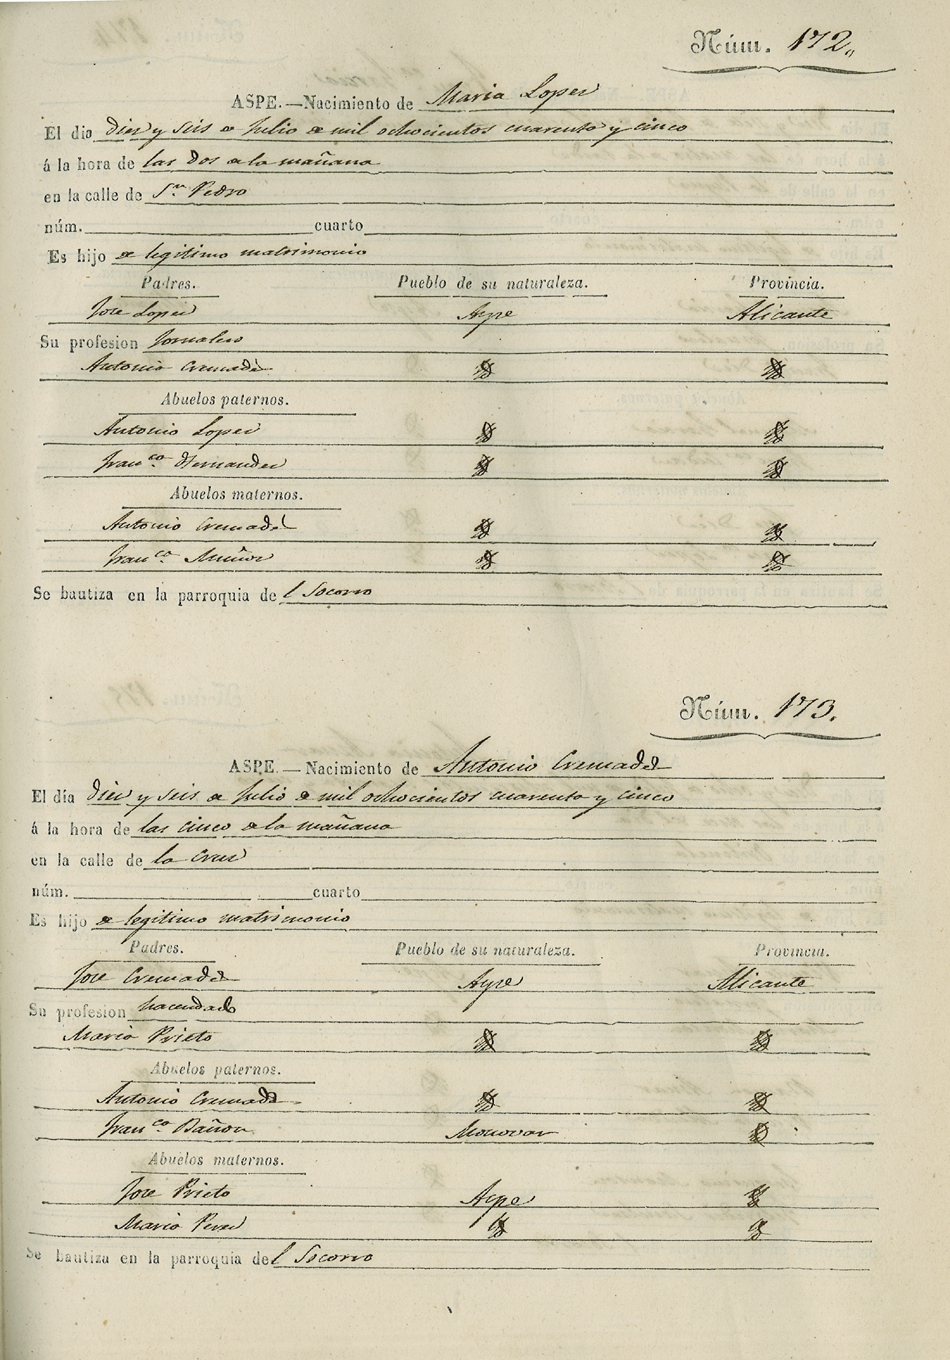 Núm. 172.
ASPE.—Nacimiento de Maria Lopez
El dia diez y seis de Julio de mil ochocientos cuarenta y cinco
á la hora de las dos de la mañana
en la calle de Sn. Pedro
núm. cuarto
Es hijo de legitimo matrimonio
Padres. Pueblo de su naturaleza. Provincia.
Jose Lopez Aspe Alicante
Su profesion Jornalero
Antonia Cremades
Abuelos paternos.
Antonio Lopez
Franca. Hernandez
Abuelos maternos.
Antonio Cremades
Franca. Muñoz
Se bautiza en la parroquia del Socorro
Núm. 173.
ASPE.—Nacimiento de Antonio Cremades
El día diez y seis de Julio de mil ochocientos cuarenta y cinco
á la hora de las cinco de la mañana
en la calle de la Cruz
núm. cuarto
Es hijo de legitimo matrimonio
Padres. Pueblo de su naturaleza. Provincia.
Jose Cremades Aspe Alicante
Su profesion hacendado
Maria Prieto
Abuelos paternos.
Antonio Cremades
Franca. Bañon Monovar
Abuelos maternos.
Jose Prieto Aspe
Maria Perez
Se bautiza en la parroquia del Socorro